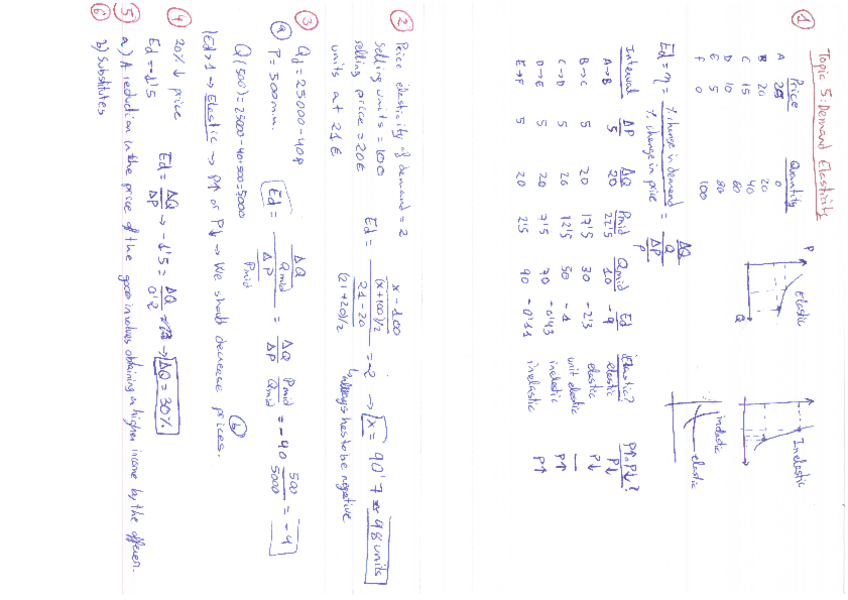 Topic 5: Demand Elasticity
① Price Quantity
A 25 0
B 20 20
C 15 40
D 10 60
E 5 80
F 0 100
P elastic Q
Inelastic
inelastic elastic
Ed = η = % change in demand / % change in price = ΔQ/Q / ΔP/P
Interval ΔP ΔQ Pmid Qmid Ed Elastic? P↑ o P↓?
A→B 5 20 22'5 10 -9 elastic P↓
B→C 5 20 17'5 30 -2'3 elastic P↓
C→D 5 20 12'5 50 -1 unit elastic —
D→E 5 20 7'5 70 -0'43 inelastic P↑
E→F 5 20 2'5 90 -0'11 inelastic P↑
② Price elasticity of demand = 2
selling units = 100
selling price = 20€
units at 21€
Ed = x - 100 / (x+100)/2 / 21 - 20 / (21+20)/2 = -2 → x = 90'7
98 units
always has to be negative
③ Qd = 25000 - 40p
ⓐ P = 500 m.u.
Q(500) = 25000 - 40·500 = 5000
Ed = ΔQ / Qmid / ΔP / Pmid = ΔQ / ΔP Pmid / Qmid = -40 500 / 5000 = -4
ⓑ
|Ed| > 1 → Elastic → P↑ or P↓ → We should decrease prices.
④ 20% ↓ price
Ed = -1'5
Ed = ΔQ / ΔP → -1'5 = ΔQ / 0'2 → ΔQ = 30%
⑤ a) A reduction in the price of the good involves obtaining a higher income by the
⑥ b) Substitutes